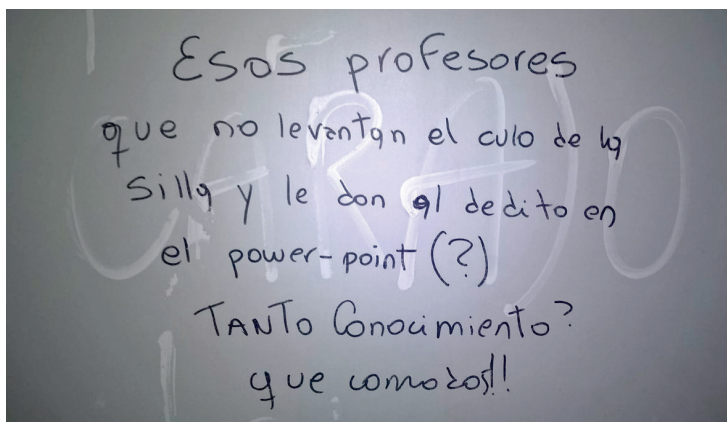 Esos profesores
que no levantan el culo de la
silla y le dan al dedito en
el power-point (?)
TANTO Conocimiento?
que comodos!!
CARAJO